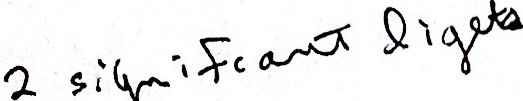 2 significant digets